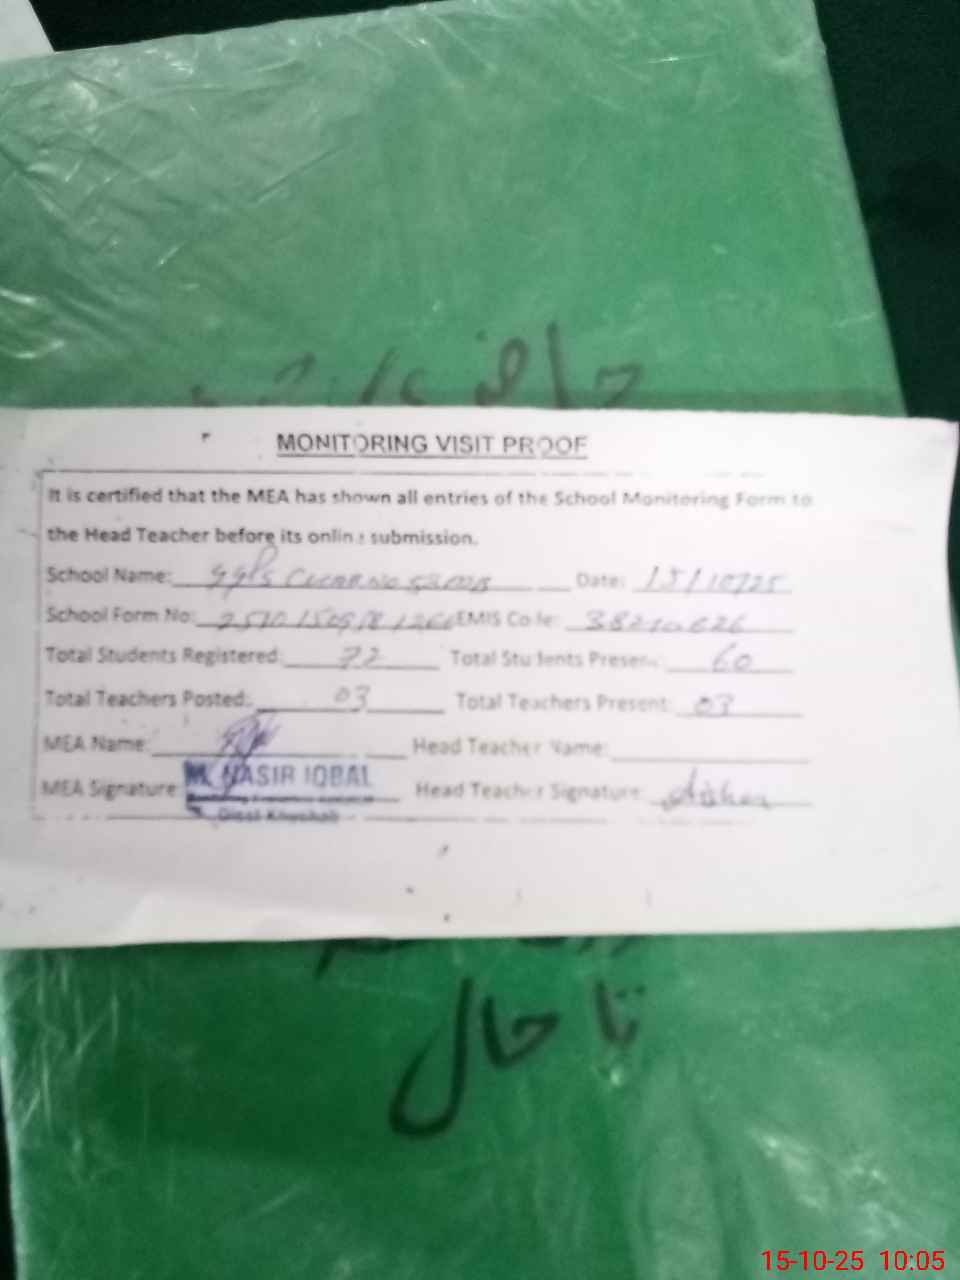 MONITORING VISIT PROOF
It is certified that the MEA has shown all entries of the School Monitoring Form to
the Head Teacher before its online submission.
School Name: Date: 15/10/25
School Form No: EMIS Code:
Total Students Registered: 72 Total Students Present: 60
Total Teachers Posted: 03 Total Teachers Present: 03
MEA Name: Head Teacher Name:
M. NASIR IQBAL
MEA Signature: Head Teacher Signature: Aisha
Distt Khushab
تا حال
15-10-25 10:05